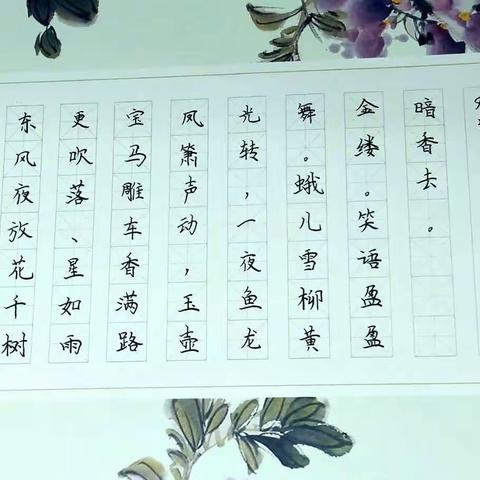 东风夜放花千树
更吹落、星如雨
宝马雕车香满路
凤箫声动，玉壶
光转，一夜鱼龙
舞。蛾儿雪柳黄
金缕。笑语盈盈
暗香去。